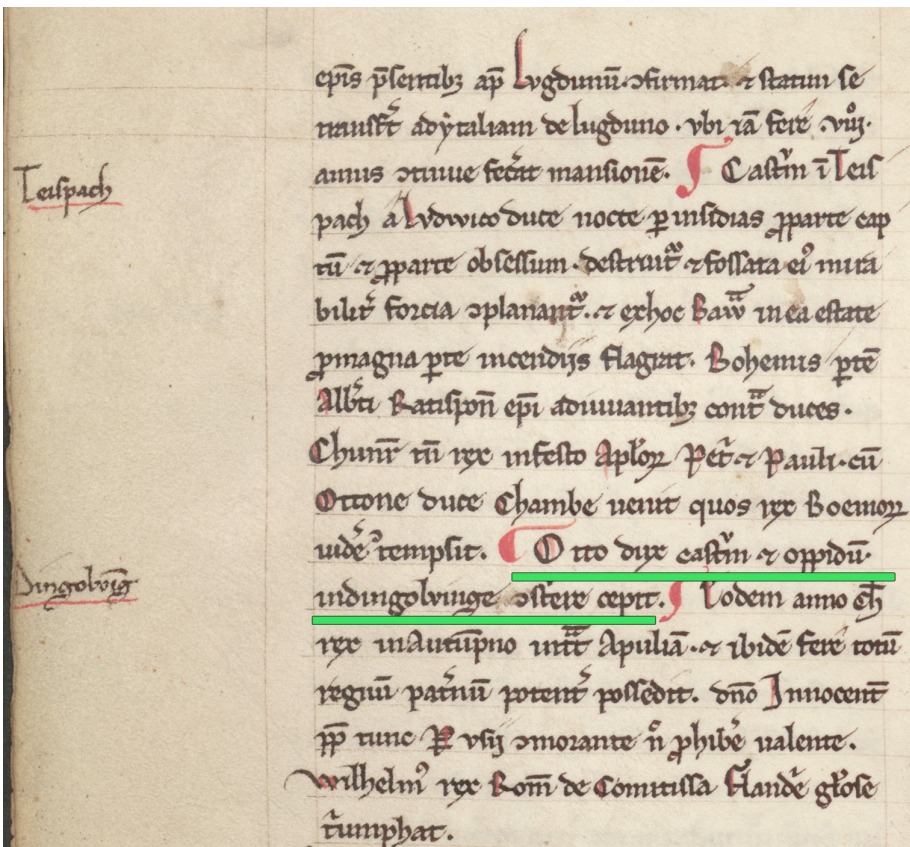 ep̄is p̄sentibꝫ ap̄ Lvgdunū ↄfirmat. ⁊ statim se
transf̄t adẏtaliam de lugduno. vbi iā fere .viijº.
Teispach
annis ↄtinue fec̄at mansionē. ¶ Castr̄m ī Teis
pach a Lvdwico duce nocte ꝑ insidias ꝓparte cap
tū ⁊ ꝓparte obsessum. destruit᷑ ⁊ fossata eiꝰ mira
bilit᷑ forcia ↄplanant᷑. ⁊ exhoc Baw̄ in ea estate
ꝓmagna ꝑte incendijs flagrat. Bohemis ꝑtē
Alb̄ti Ratispon̄ ep̄i adiuuantibꝫ cont̄ duces.
Chunr̄ tn̄ rex infesto Apl̄oꝝ Pet᷑ ⁊ Pauli. cū
Ottone duce Chambe uenit quos rex Boemoꝝ
uidēꝰ tempsit. ¶ Otto dux castr̄m ⁊ oppidū
Dingolvīg
indingolvinge ↄst̄ere cepit. ¶ Eodem anno Ch̄
rex inAutūpno int̄ͣt Apuliā. ⁊ ibidē fere totū
regnū pat̄nū potent᷑ possedit. dn̄o Innocent̄
pp̄ tunc Ꝑvsij ↄmorante n̄ ꝓhib̄e ualente.
Wilhelmꝰ rex Rom̄ de Comitissa fland̄e gl̄ose
t̄umphat.